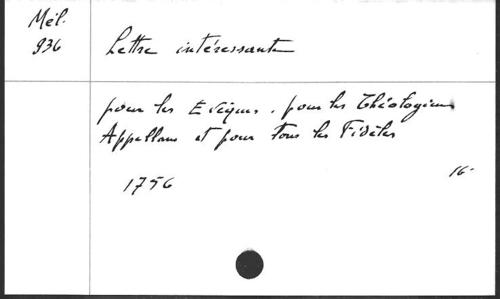 Mél.
936
Lettre intéressante
pour les Evêques, pour les Théologiens
Appellans et pour tous les Fidèles
1756
16-